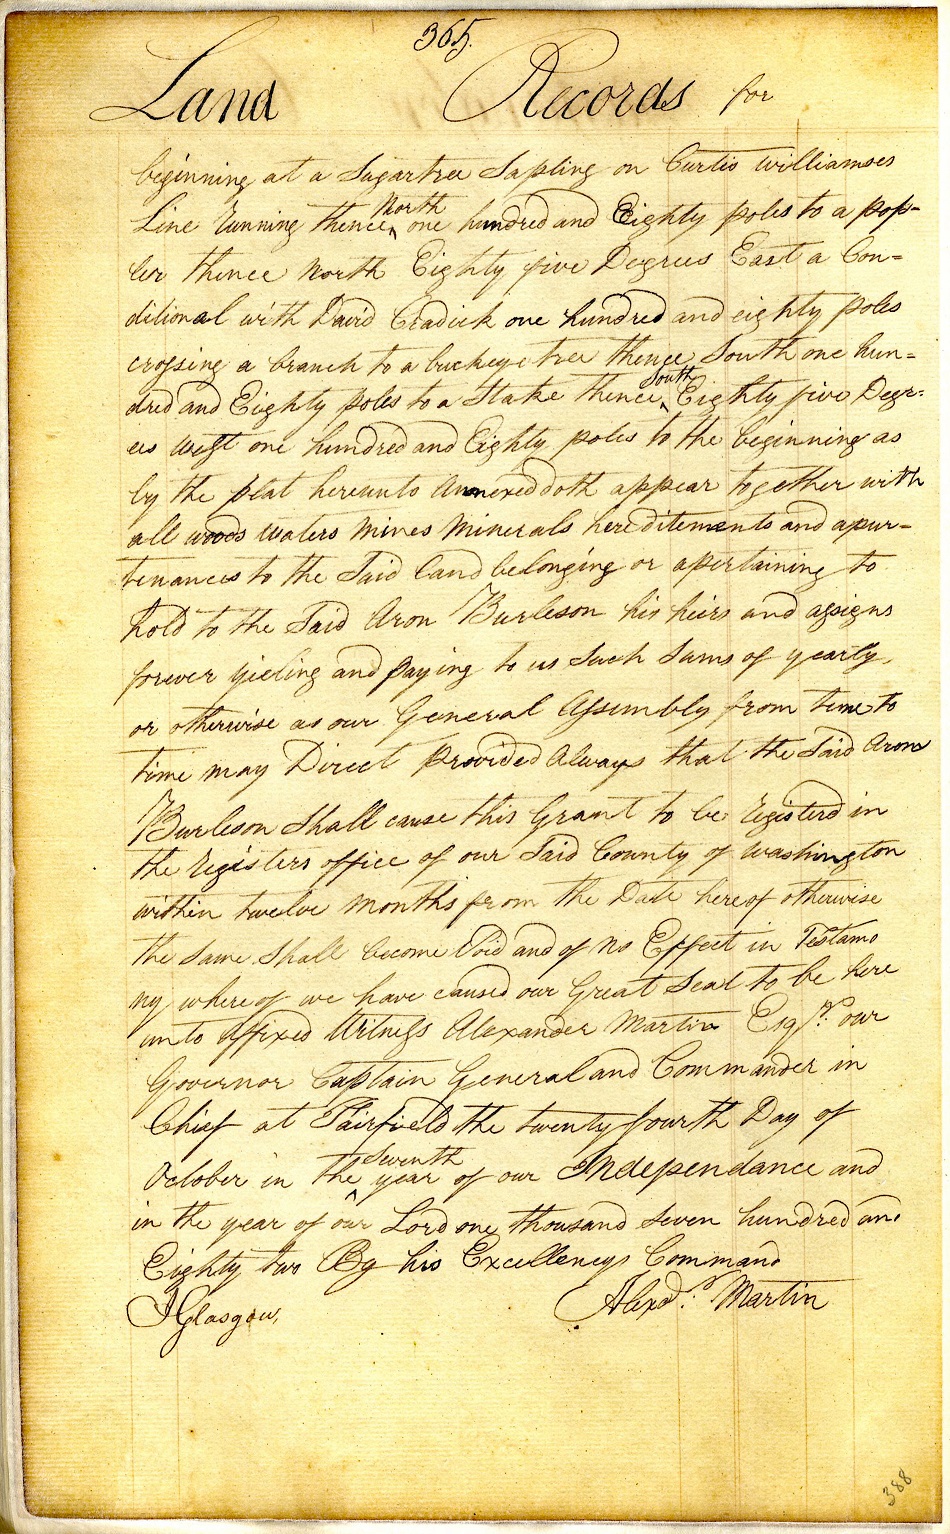 365.
Land Records for
beginning at a Sugartree Sapling on Curtis Williamses
Line Running thence North one hundred and Eighty poles to a pop-
ler thence North Eighty five Degrees East a Con=
ditional with David Cradick one hundred and eighty poles
crossing a branch to a buckeye tree thence South one hun=
dred and Eighty poles to a Stake thence South Eighty five Degr=
ees West one hundred and Eighty poles to the beginning as
by the plat hereunto Annexed doth appear together with
all woods waters mines minerals hereditements and apur=
tenances to the Said land belonging or apertaining to
hold to the Said Aron Burleson his heirs and assigns
forever yieling and paying to us Such Sums of yearly,
or otherwise as our General Assembly from time to
time may Direct provided Always that the Said Aron
Burleson Shall cause this Grant to be Registerd in
the Registers office of our Said County of Washington
within twelve months from the Date hereof otherwise
the Same Shall become Void and of no Effect in Testamo
ny whereof we have caused our Great Seal to be here
unto Affixed Witness Alexander Martin Esqr. our
Governor Captain General and Commander in
Chief at Fairfield the twenty fourth Day of
October in the Seventh year of our Independance and
in the year of our Lord one thousand Seven hundred and
Eighty two By his Excellencys Command
J Glasgow, Alexd. Martin
388